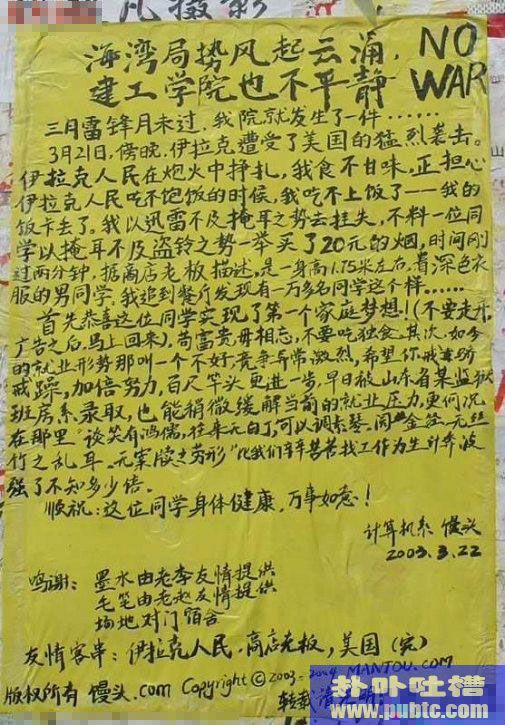 凡摄影
海湾局势风起云涌,
建工学院也不平静
NO
WAR
三月雷锋月未过,我院就发生了一件……
3月21日,傍晚,伊拉克遭受了美国的猛烈袭击。
伊拉克人民在炮火中挣扎,我食不甘味,正担心
伊拉克人民吃不饱饭的时候,我吃不上饭了——我的
饭卡丢了。我以迅雷不及掩耳之势去挂失,不料一位同
学以掩耳不及盗铃之势一举买了20元的烟,时间刚
过两分钟,据商店老板描述,是一身高1.75米左右,着深色衣
服的男同学,我追到餐厅发现有一万多名同学这个样……
首先恭喜这位同学实现了第一个家庭梦想!(不要走开,
广告之后,马上回来),苟富贵毋相忘,不要吃独食。其次,如今
的就业形势那叫一个不好,竞争异常激烈,希望你戒骄
戒躁,加倍努力,百尺竿头更进一步,早日被山东省某监狱
班房系录取,也能稍微缓解当前的就业压力,更何况
在那里"谈笑有鸿儒,往来无白丁,可以调素琴,阅金经,无丝
竹之乱耳。无案牍之劳形"比我们辛辛苦苦找工作为生计奔波
强了不知多少倍。
顺祝:这位同学身体健康,万事如意!
计算机系 馒头
2003.3.22
鸣谢:墨水由老李友情提供
毛笔由老赵友情提供
场地对门宿舍
友情客串:伊拉克人民,商店老板,美国(完)
版权所有 馒头.com Copyright © 2003-2004 MANTOU.com
转载请
扑卟吐槽
www.pubtc.com